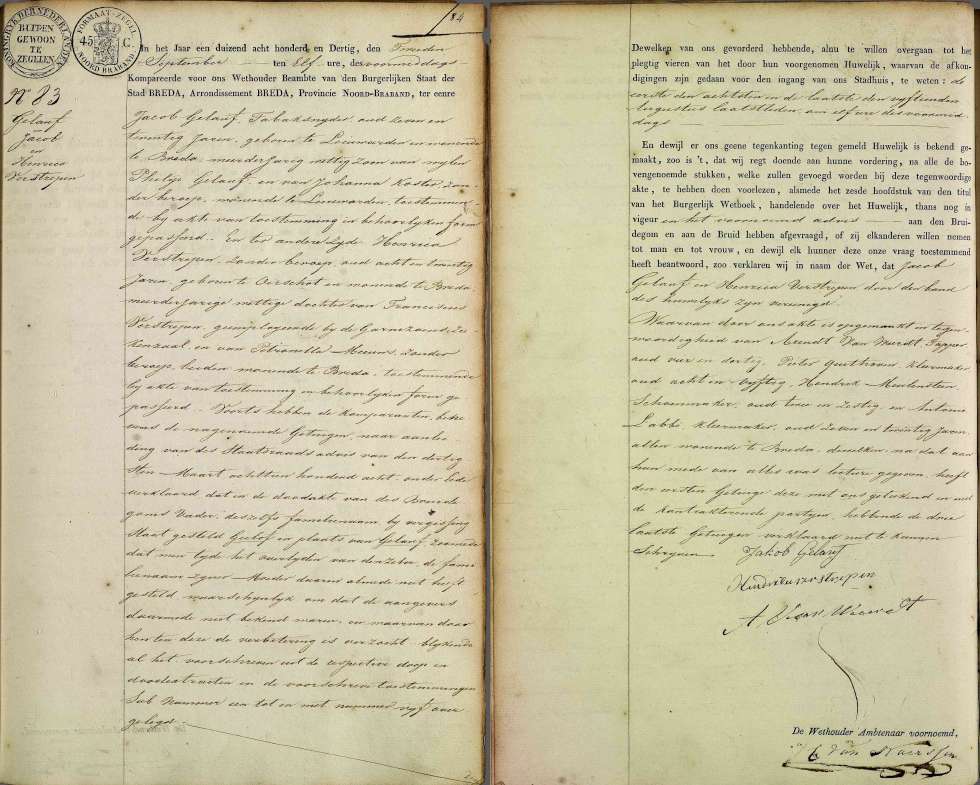 184
KONINGRYK DER NEDERLANDEN
BUITEN
GEWOON
TE
ZEGELEN
FORMAAT-ZEGEL
45 C.
NOORD BRABAND
In het Jaar een duizend acht honderd en Dertig, den Tweeden
September ten Elf ure, des voormiddags
Kompareerde voor ons Wethouder Beambte van den Burgerlijken Staat der
Stad BREDA, Arrondissement BREDA, Provincie NOORD-BRABAND, ter eenre
No 83
Gelauf
Jacob
en
Henrica
Verstrepen
Jacob Gelauf, Tabaksnyder, oud zeven en
twintig Jaren, geboren te Leeuwarden en wonende
te Breda, meerderjarig wettig Zoon van wylen
Philip Gelauf, en van Johanna Koster, zon-
der beroep, wonende te Leeuwarden, toestemmen-
de by akte van toestemming in behoorlyken form
gepasseerd. En ter andere zyde Henrica
Verstrepen, zonder beroep, oud acht en twintig
Jaren, geboren te Oirschot en wonende te Breda
meerderjarige wettige dochter van Franciscus
Verstrepen, geemployeerde by de Garnizoens Zie-
kenzaal, en van Petronella Meeuws, zonder
beroep, beiden wonende te Breda, toestemmende
by akte van toestemming in behoorlyken form ge-
passeerd. Voorts hebben de komparanten, bene-
vens de nagenoemde Getuigen, naar aanlei-
ding van des Staatsraads advies van den dertig-
sten Maart achttien honderd acht, onder Eede
verklaard dat in de doodakte van des Bruide-
goms Vader, deszelfs familienaam by vergissing
staat gesteld Gelof in plaats van Gelauf, zoomede
dat men tyde het overlyden van denzelve, de fami-
lienaam zyner Moeder daarin almede niet heeft
gesteld waarschynlyk om dat de aangevers
daarmede niet bekend waren, en waarvan door
hen ten deze de verbetering is verzocht, blykende
al het voorschreven uit de respective doop en
doodextracten en de voorschreven toestemmingen
Sub Nummer een tot en met nummer vyf over-
gelegd.
Dewelken van ons gevorderd hebbende, alnu te willen overgaan tot het
plegtig vieren van het door hun voorgenomen Huwelijk, waarvan de afkon-
digingen zijn gedaan voor den ingang van ons Stadhuis, te weten: de
eerste den achtsten en de laatste den vyftienden
Augustus laatstleden, om elf ure des voormid-
dags
En dewijl er ons geene tegenkanting tegen gemeld Huwelijk is bekend ge-
maakt, zoo is 't, dat wij regt doende aan hunne vordering, na alle de bo-
vengenoemde stukken, welke zullen gevoegd worden bij deze tegenwoordige
akte, te hebben doen voorlezen, alsmede het zesde hoofdstuk van den titul
van het Burgerlijk Wetboek, handelende over het Huwelijk, thans nog in
vigeur en het voornoemd advies aan den Brui-
degom en aan de Bruid hebben afgevraagd, of zij elkanderen willen nemen
tot man en tot vrouw, en dewijl elk hunner deze onze vraag toestemmend
heeft beantwoord, zoo verklaren wij in naam der Wet, dat Jacob
Gelauf en Henrica Verstrepen door den band
des huwelyks zyn vereenigd.
Waarvan door ons akte is opgemaakt in tegen-
woordigheid van Arendt Van Weerdt, Tapper
oud vier en dertig, Pieter Kleermaker
oud acht en vyftig, Hendrik Meulensteen
Schoenmaker, oud twee en zestig en Antonie
Labbé, kleermaker, oud zeven en twintig Jaren,
allen wonende te Breda, dewelken, na dat aan
hun mede van alles was lecture gegeven, heeft
den eersten Getuige deze met ons geteekend en met
de kontracterende partyen, hebbende de drie
laatste Getuigen verklaard niet te kunnen
Schryven
Jakob Gelauf
Hendrica verstrepen
A. Van Weerdt
De Wethouder Ambtenaar voornoemd,